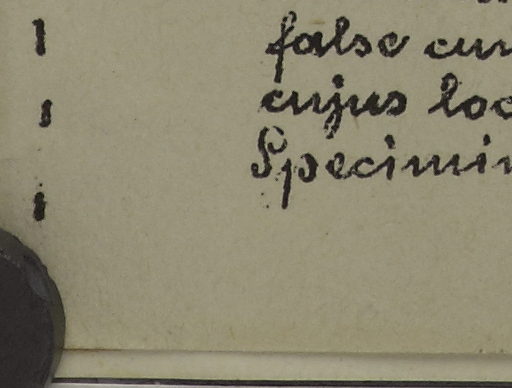 false cur
cujus loc
Specimin